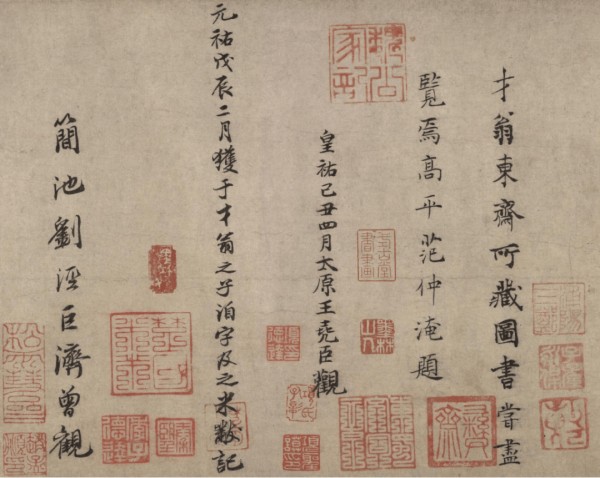 才翁東齋所藏圖書嘗盡
覽焉高平范仲淹題
皇祐己丑四月太原王堯臣觀
元祐戊辰二月獲于才翁之子洎字及之米黻記
簡池劉涇巨濟曾觀